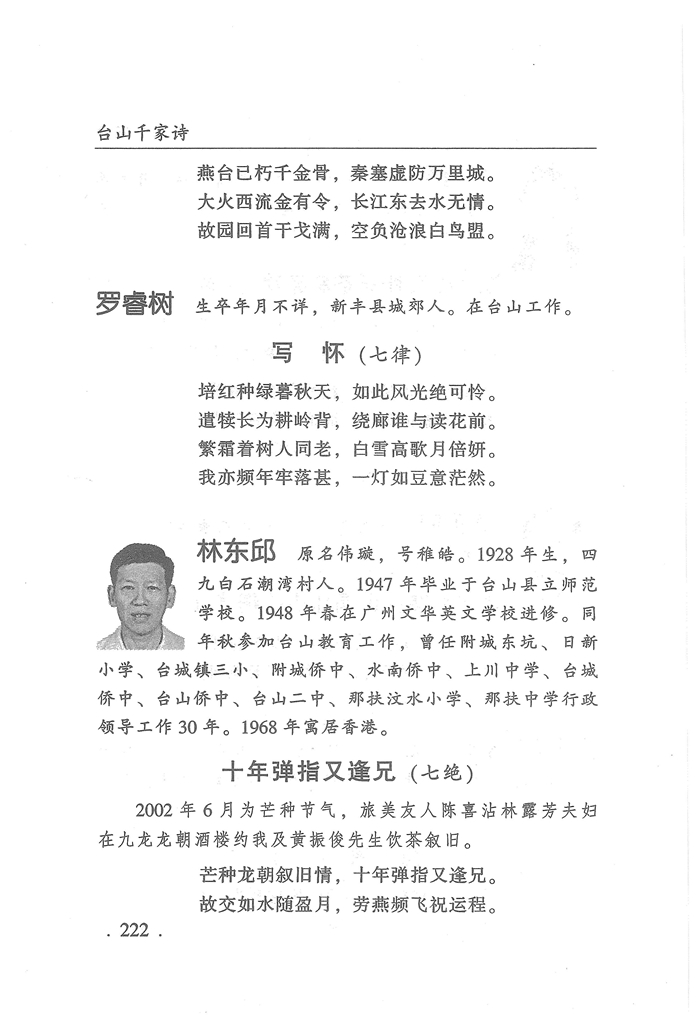 台山千家诗
燕台已朽千金骨，秦塞虚防万里城。
大火西流金有令，长江东去水无情。
故园回首干戈满，空负沧浪白鸟盟。
罗睿树 生卒年月不详，新丰县城郊人。在台山工作。
写 怀（七律）
培红种绿暮秋天，如此风光绝可怜。
遣犊长为耕岭背，绕廊谁与读花前。
繁霜着树人同老，白雪高歌月倍妍。
我亦频年牢落甚，一灯如豆意茫然。
林东邱 原名伟璇，号稚皓。1928 年生，四
九白石潮湾村人。1947 年毕业于台山县立师范
学校。1948 年春在广州文华英文学校进修。同
年秋参加台山教育工作，曾任附城东坑、日新
小学、台城镇三小、附城侨中、水南侨中、上川中学、台城
侨中、台山侨中、台山二中、那扶汶水小学、那扶中学行政
领导工作 30 年。1968 年寓居香港。
十年弹指又逢兄（七绝）
2002 年 6 月为芒种节气，旅美友人陈喜沾林露芳夫妇
在九龙龙朝酒楼约我及黄振俊先生饮茶叙旧。
芒种龙朝叙旧情，十年弹指又逢兄。
故交如水随盈月，劳燕频飞祝运程。
. 222 .